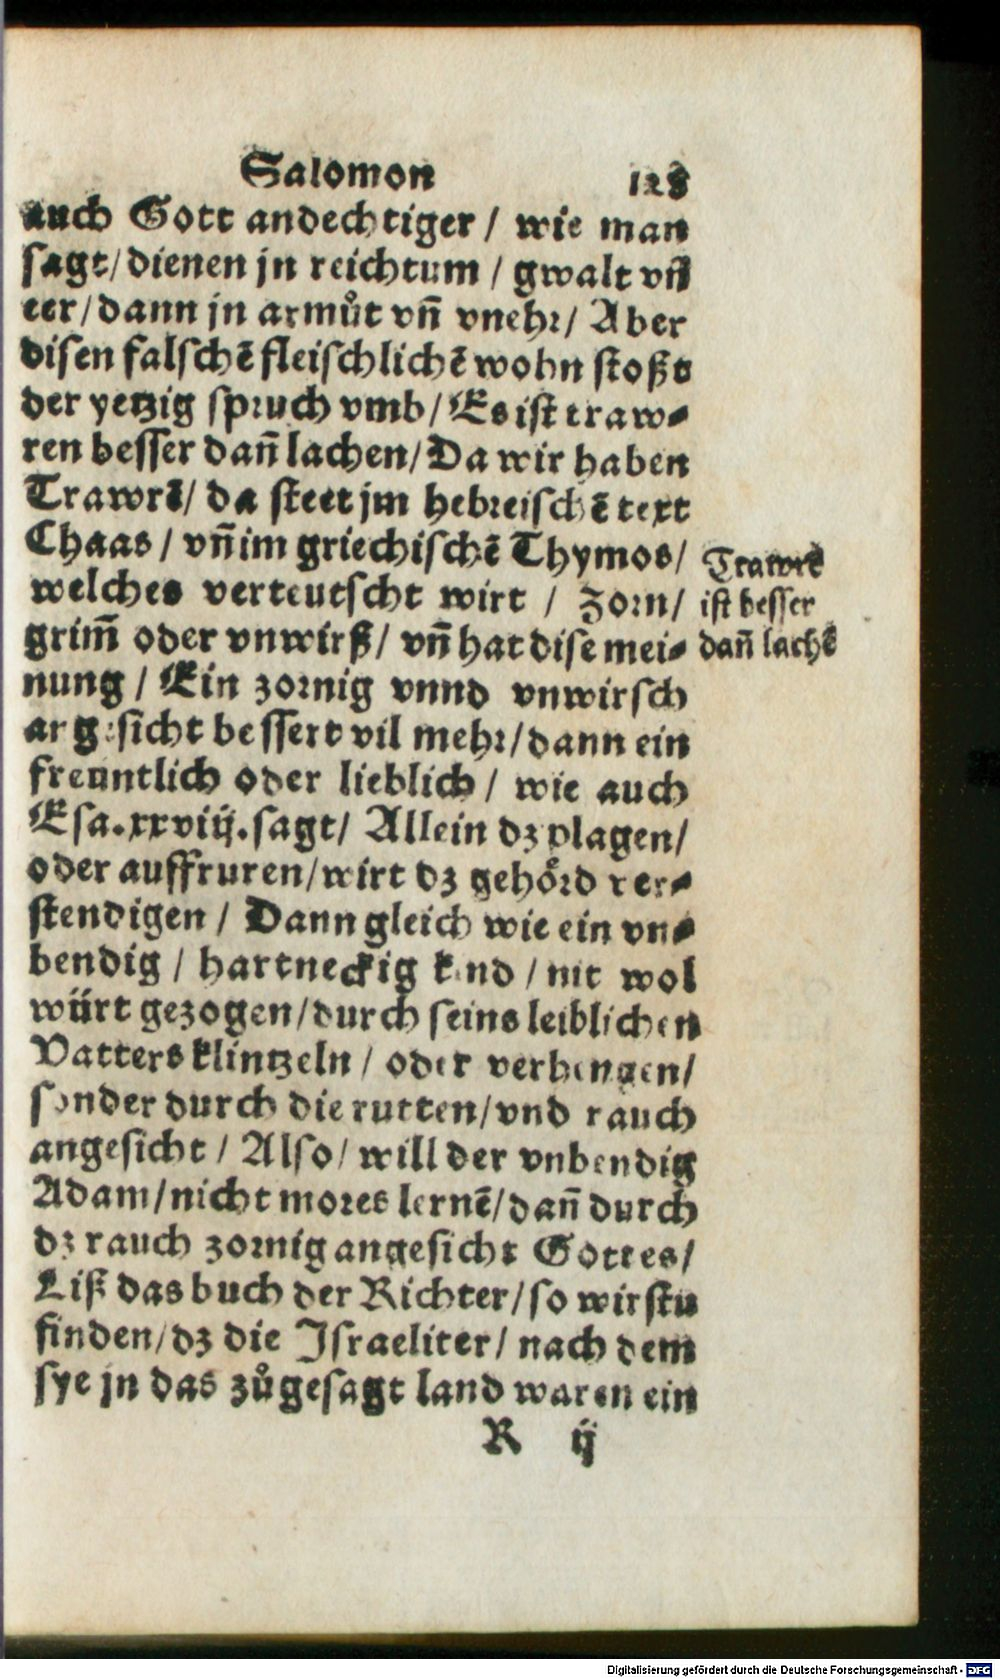 Salomon 128
auch Gott andechtiger / wie man
sagt / dienen jn reichtum / gwalt vñ
eer / dann jn armůt vñ vnehr / Aber
disen falschẽ fleischlichẽ wohn stoßt
der yetzig spruch vmb / Es ist traw⸗
ren besser dañ lachen / Da wir haben
Trawrẽ / da steet jm hebreischẽ text
Chaas / vñ im griechischẽ Thymos /
welches verteutscht wirt / Zorn /
grim̃ oder vnwirß / vñ hat dise mei⸗
nung / Ein zornig vnnd vnwirsch
angesicht bessert vil mehr / dann ein
freuntlich oder lieblich / wie auch
Esa. xxviij. sagt / Allein dz plagen /
oder auffruren / wirt dz gehörd ver⸗
stendigen / Dann gleich wie ein vn⸗
bendig / hartneckig kind / nit wol
würt gezogen / durch seins leiblichen
Vatters klintzeln / oder verhengen /
sonder durch die rutten / vnd rauch
angesicht / Also / will der vnbendig
Adam / nicht mores lernẽ / dañ durch
dz rauch zornig angesicht Gottes /
Liß das buch der Richter / so wirstu
finden / dz die Israeliter / nach dem
sye jn das zůgesagt land waren ein
R ij
Trawrẽ
ist besser
dañ lachẽ
Digitalisierung gefördert durch die Deutsche Forschungsgemeinschaft - DFG